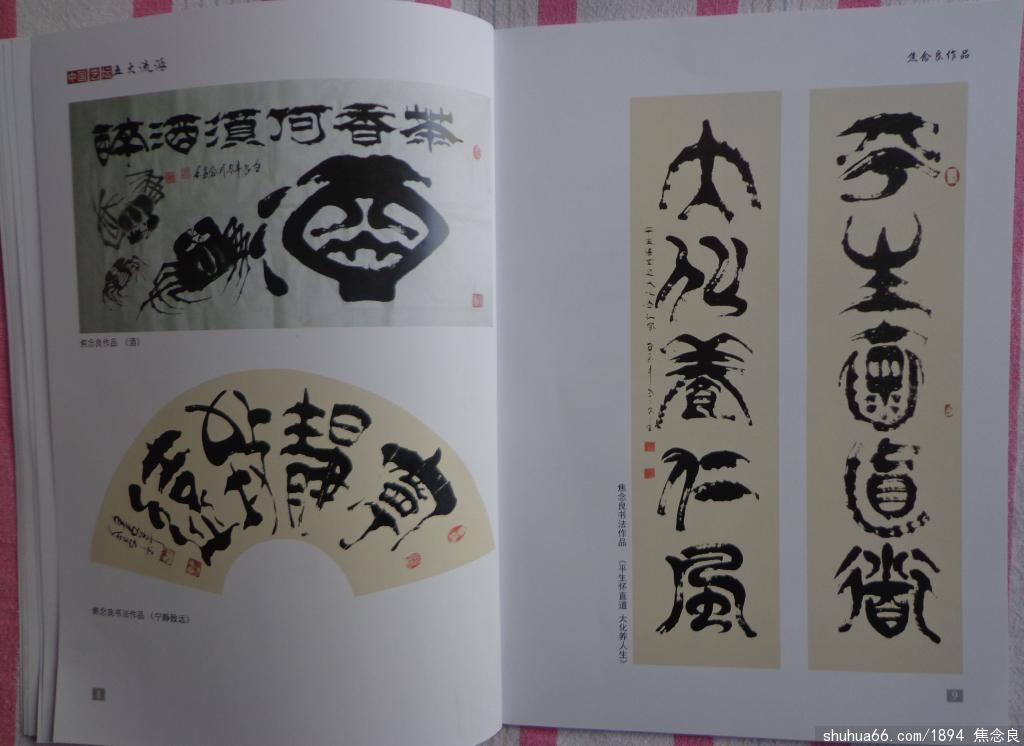 中国艺坛五大流派
茶香何須酒醉
酒
焦念良作品 《酒》
寧靜致遠
焦念良书法作品 《宁静致远》
焦念良作品
平生懷直道
大化養仁風
焦念良书法作品 《平生怀直道 大化养人生》
9
shuhua66.com/1894 焦念良